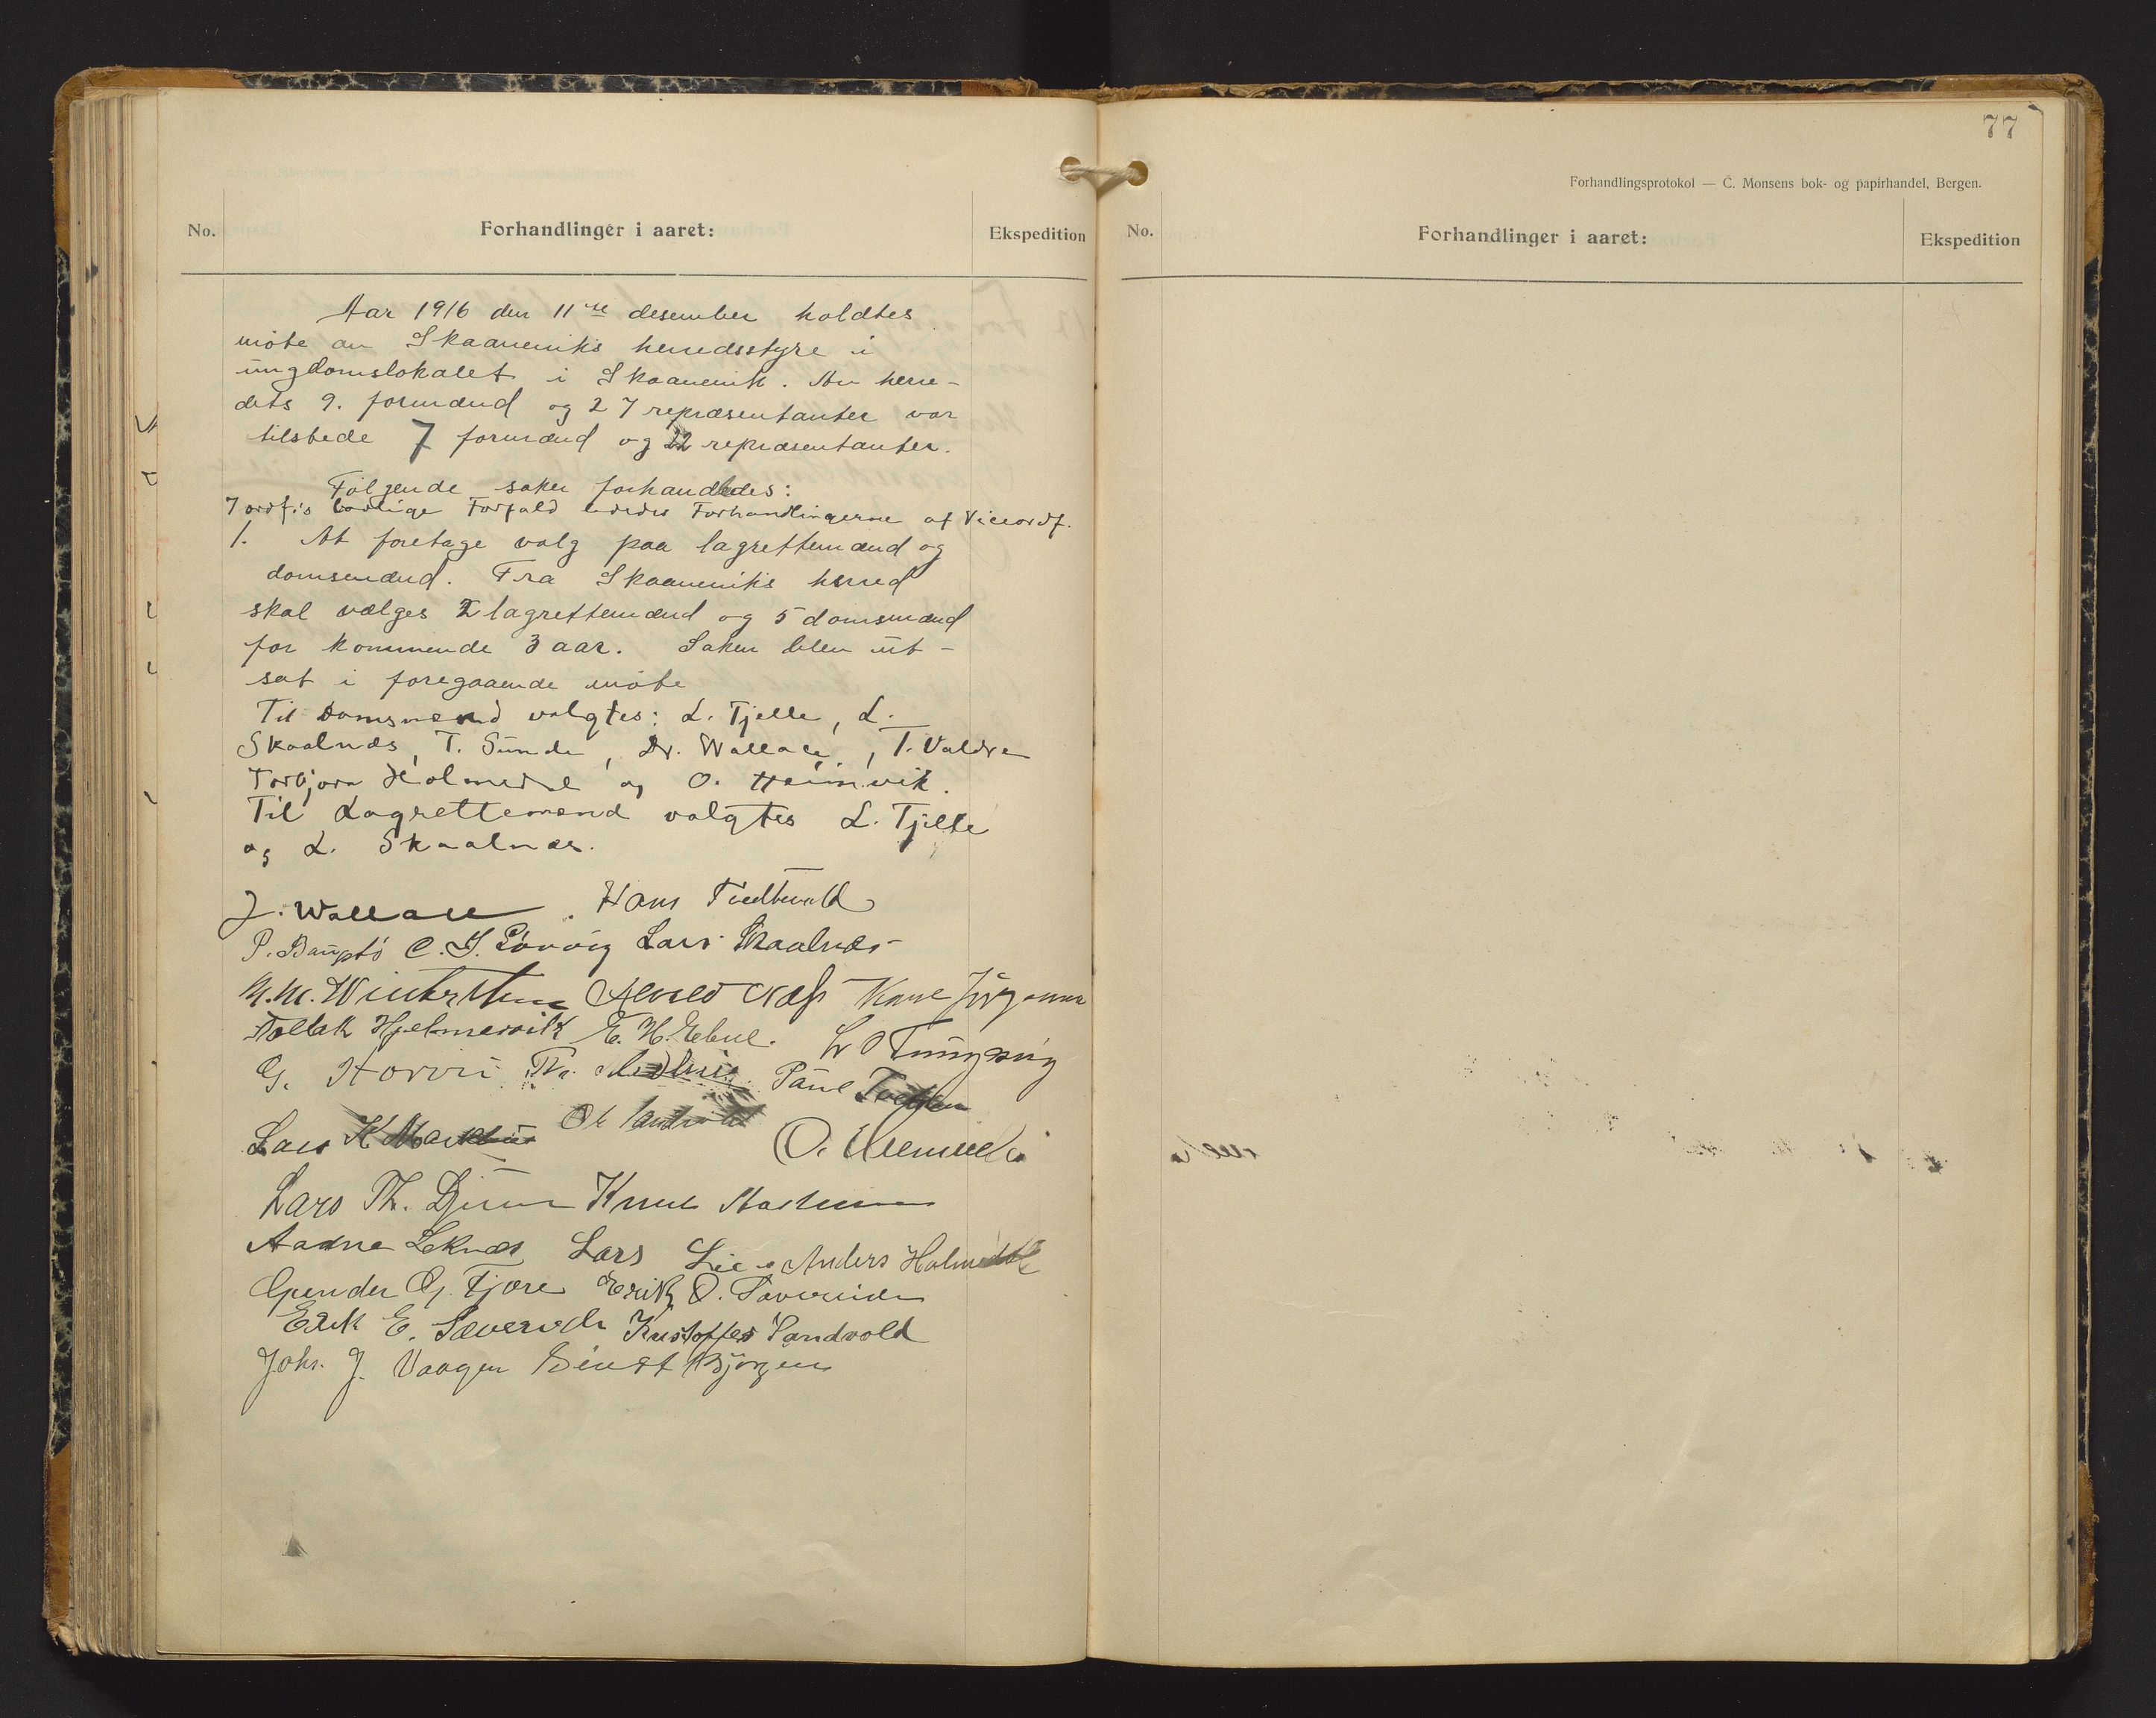 No.
Forhandlinger i aaret:
Ekspedition
Aar 1916 den 11te desember holdtes
møte av Skaaneviks herredsstyre i
ungdomslokalet i Skaanevik. Av herre-
dets 9. formænd og 27 repræsentanter var
tilstede 7 formænd og 22 repræsentanter.
Følgende saker forhandledes:
I ordf.s lovlige Forfald lededes Forhandlingerne af Viceordf.
1. At foretage valg paa lagrettemænd og
domsmænd. Fra Skaaneviks herred
skal vælges 2 lagrettemænd og 5 domsmænd
for kommende 3 aar. Saken blev ut-
sat i foregaaende møte
Til Domsmænd valgtes: L. Tjelle, L.
Skaalnes, T. Sunde, Dr. Wallace, T. Valdre
Torbjørn Holmedal og O. Heimvik.
Til Lagrettemænd valgtes L. Tjelle
og L. Skaalnæs.
J. Wallace. Hans
P. C. Lars Skaalnæs
Alfred Næss
Tollak Hjelmervik E. H.
G. Paul
Lars K O.
Lars Th. Knut
Aadne Leknes Lars Lie Anders Holmedal
G. Fjære Erik O.
Erik E. Kristoffer Sandvold
Johs. J. Vaagen Bjørgen
77
Forhandlingsprotokol — C. Monsens bok- og papirhandel, Bergen.
No.
Forhandlinger i aaret:
Ekspedition